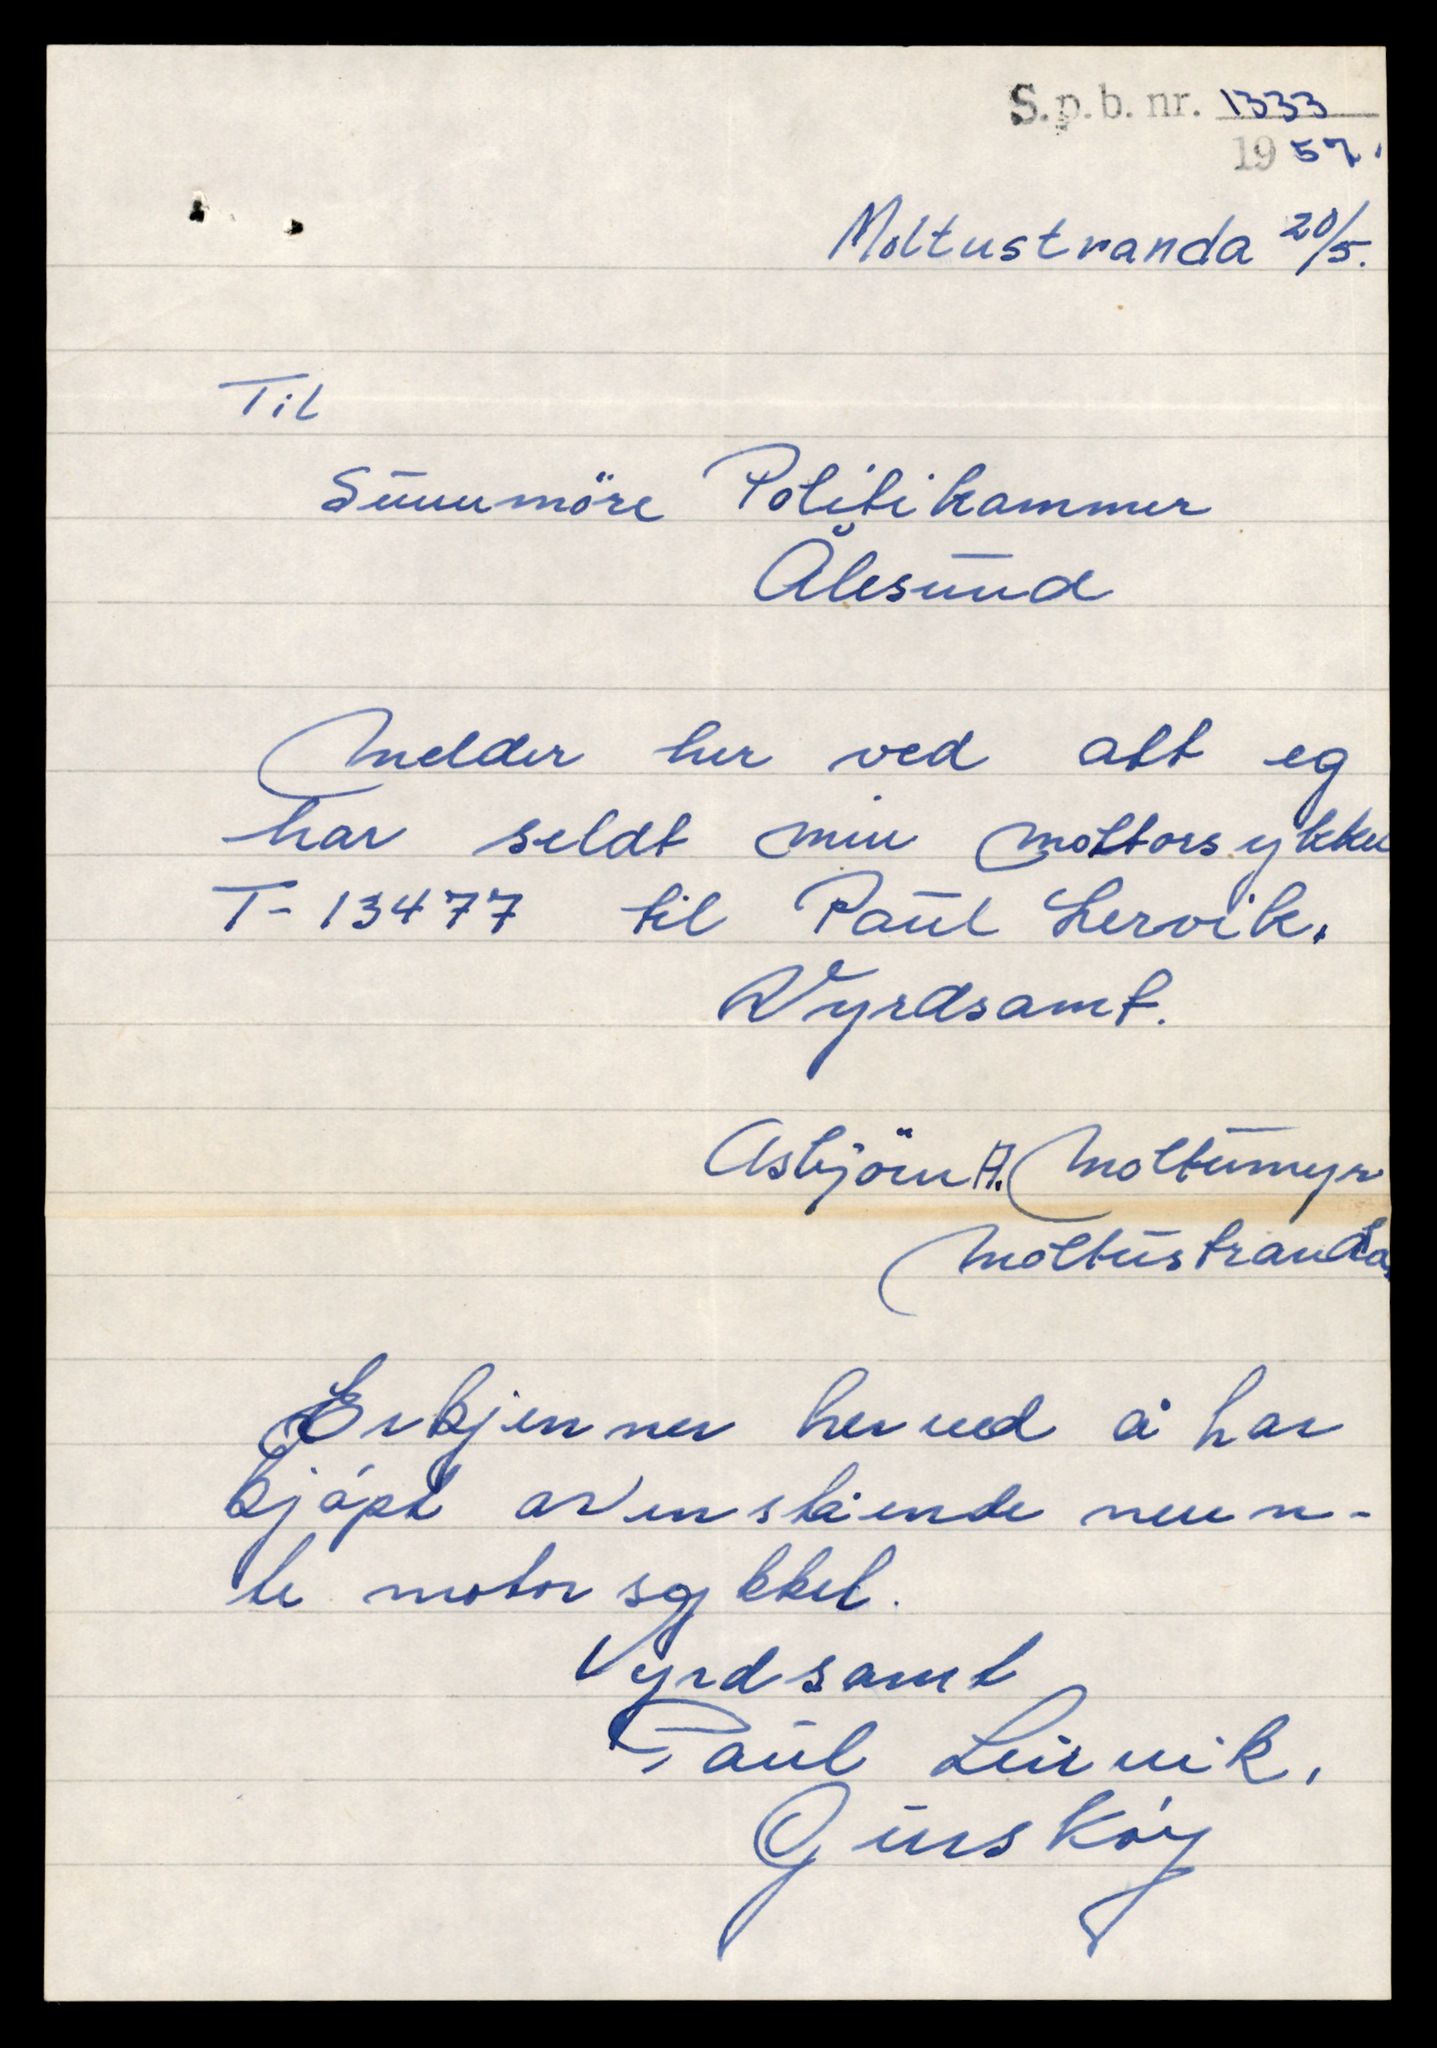 S.p.b. nr. 1333
1957.
Moltustranda 20/5.
Til
Sunnmöre Politikammer
Ålesund
Melder her ved att eg
har seldt min mottorsykkel
T-13477 til Paul Lervik.
Vyrdsamt.
Asbjörn A. Moltumyr
Moltustranda.
Erkjenner herved å har
kjöpt ovenstående nevn-
te motorsykkel.
Vyrdsamt
Paul Leirvik.
Gursköy